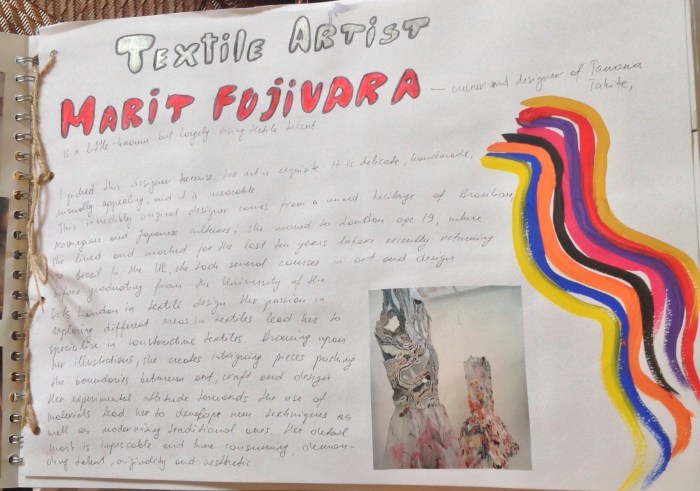 TEXTILE ARTIST
MARIT FUJIVARA — owner and designer of
is a little-known but largely rising textile talent
I picked this designer because her art is exquisite. It is delicate, handmade,
visually appealing, and it is wearable.
This incredibly original designer comes from a mixed heritage of Brazilian,
Norwegian and Japanese cultures, she moved to London age 19, where
she lived and worked for the last ten years before recently returning
to Brasil. In the UK, she took several courses in art and design
before graduating from the University of the
Arts London in textile design. Her passion in
exploring different areas in textiles lead her to
specialise in constructive textiles. Drawing upon
her illustrations, she creates intriguing pieces pushing
the boundaries between art, craft and design.
Her experimental attitude towards the use of
materials lead her to develope new techniques as
well as moderning traditional ones. Her detail
work is impeccable and time consuming, deman-
ding talent, originality and aesthetic